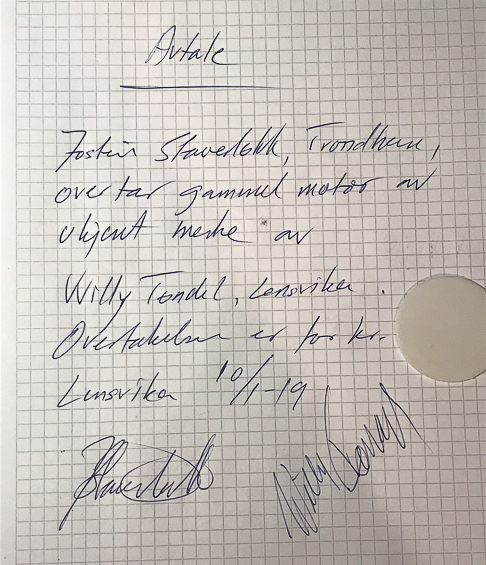 Avtale
Jostein Staverløkk, Trondheim,
overtar gammel motor av
ukjent merke av
Willy Tøndel, Lensvika.
Overtakelsen er for kr.
Lensvika 10/1-19